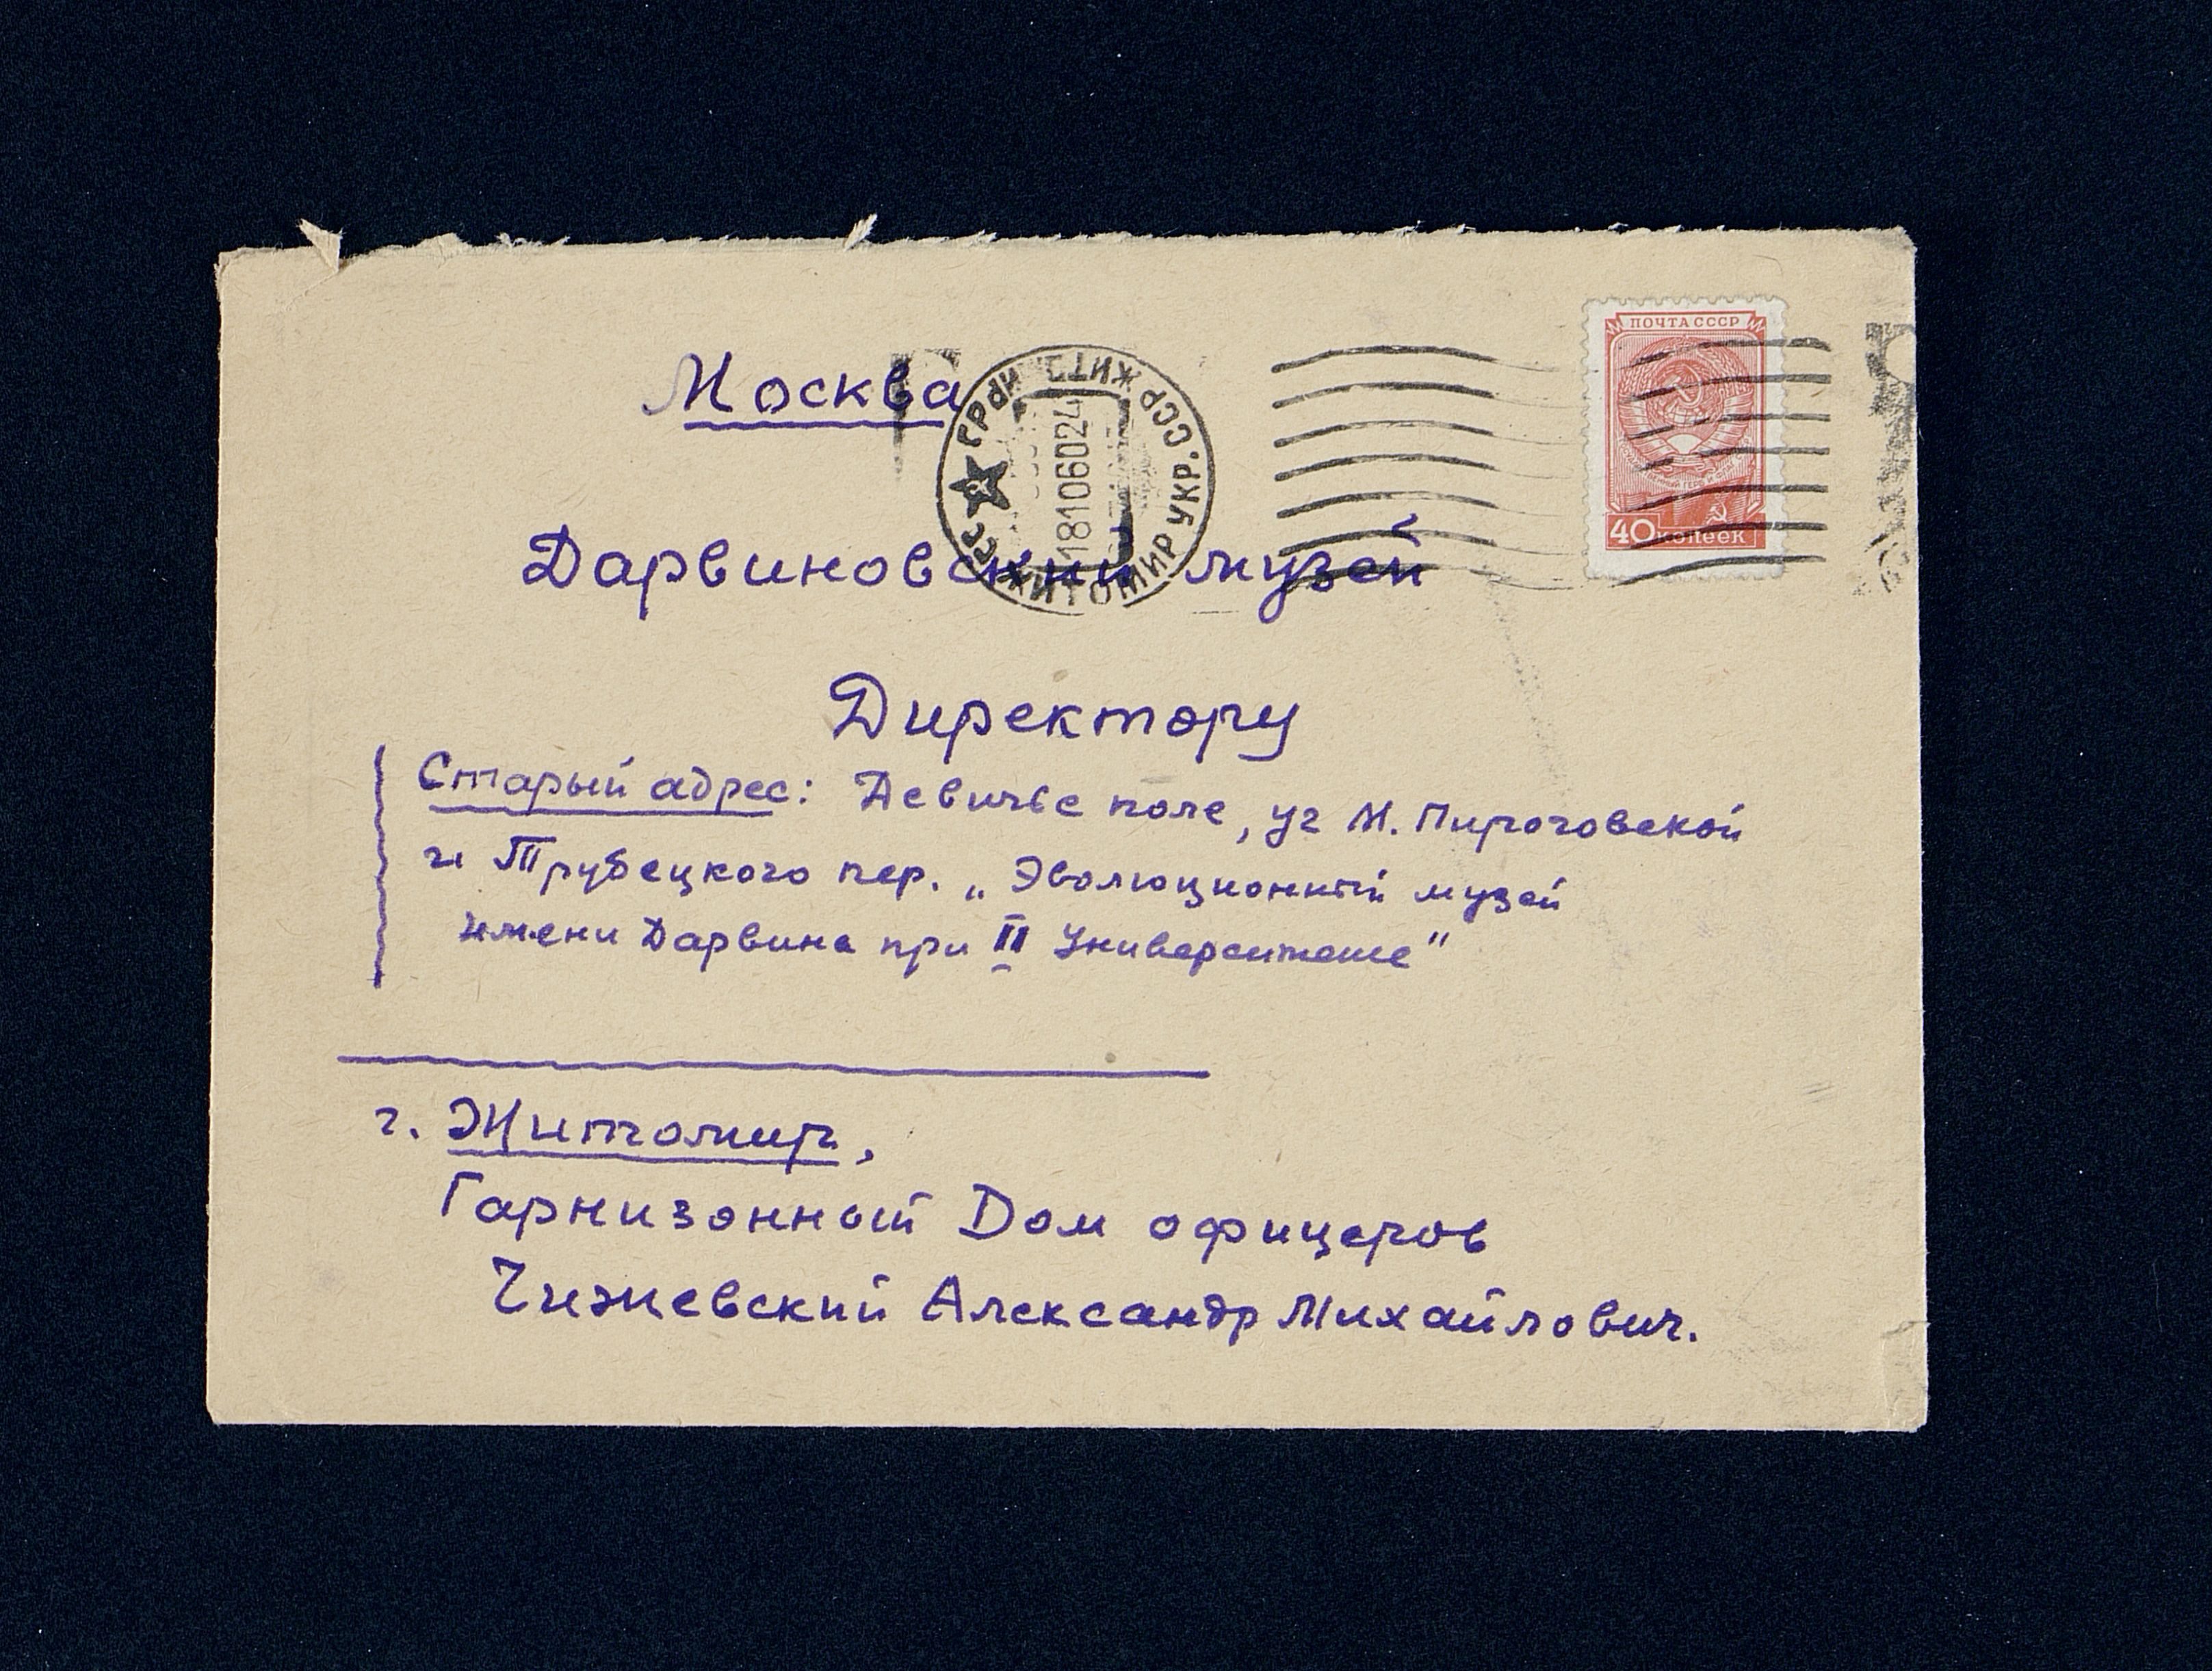 Москва
Дарвиновский музей
Директору
Старый адрес: Девичье поле, уг М. Пироговской
и Трубецкого пер. „Эволюционный музей
имени Дарвина при II Университете"
г. Житомир,
Гарнизонный Дом офицеров
Чижевский Александр Михайлович.
ПОЧТА СССР
40 копеек
ЖИТОМИР УКР. ССР
18106024